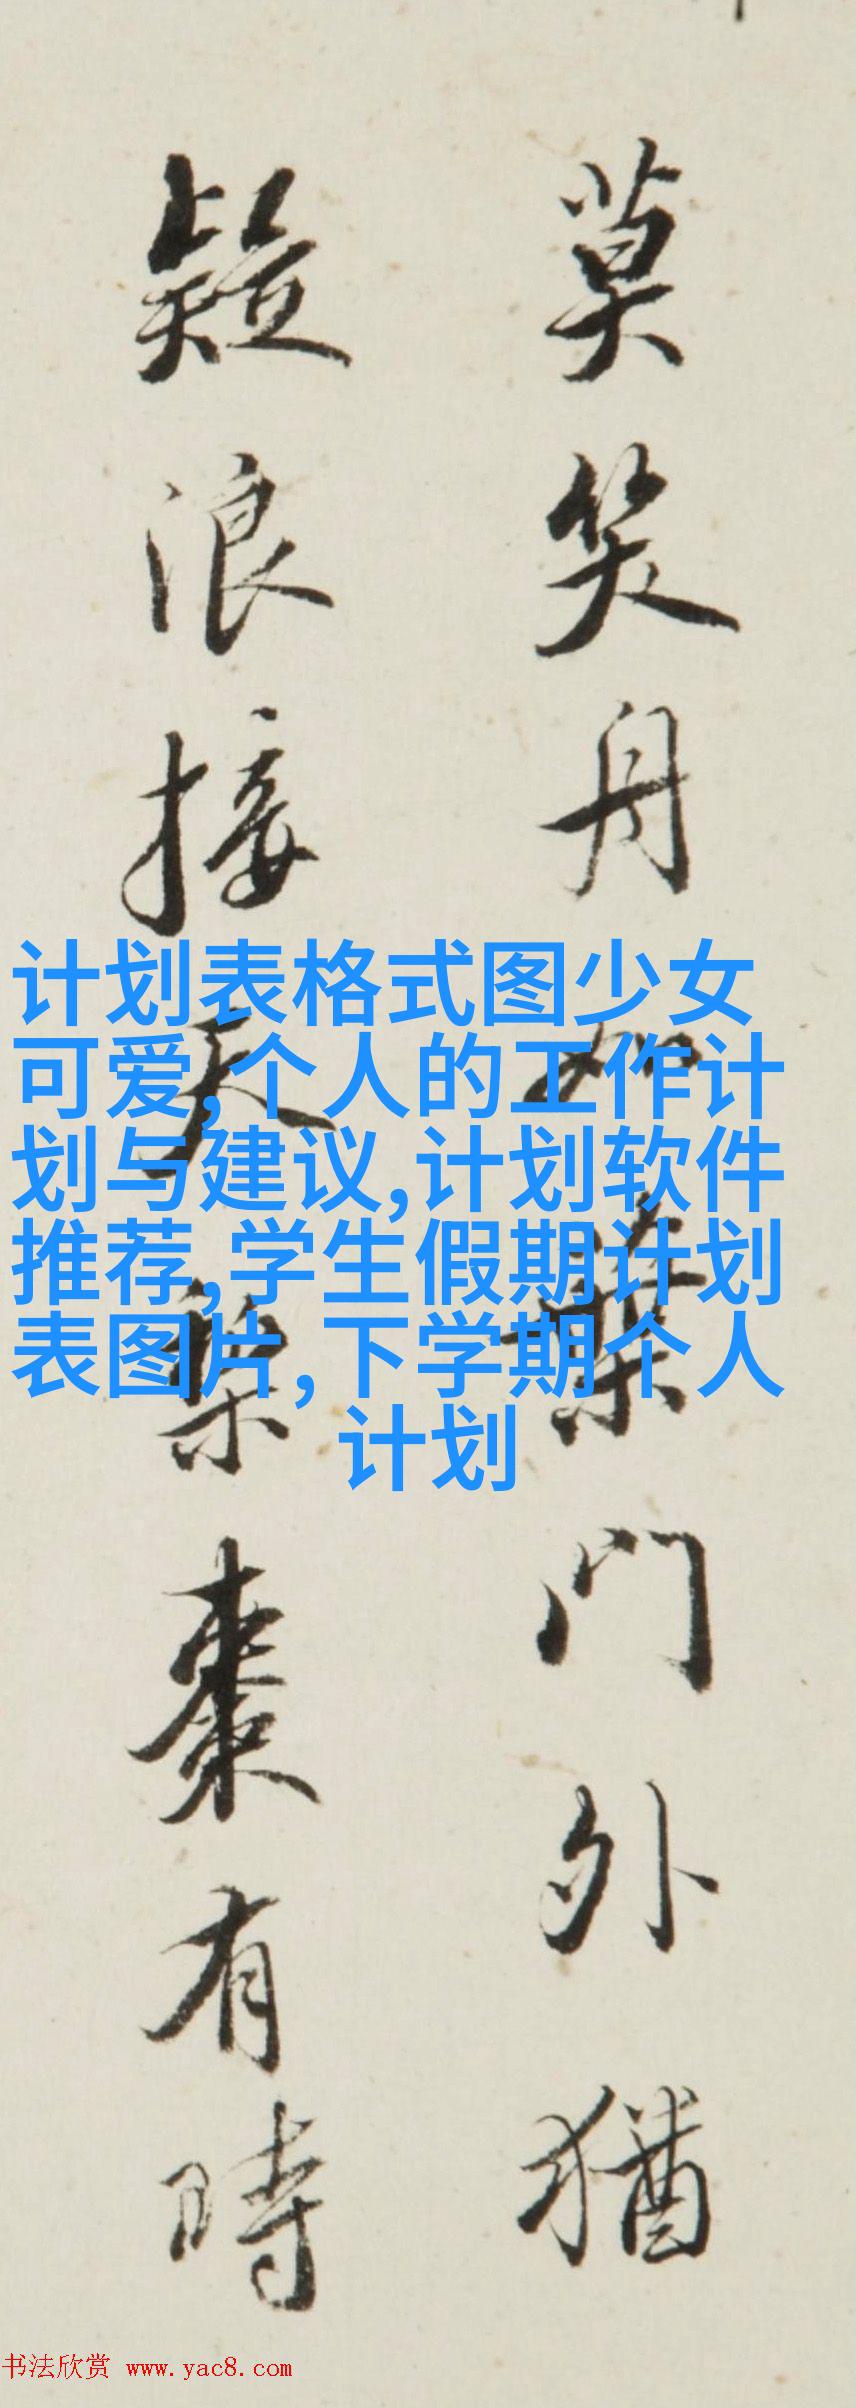 莫笑舟如葉門外猶
疑浪接天棗有時
计划表格式图少女
可爱,个人的工作计
划与建议,计划软件
推荐,学生假期计划
表图片,下学期个人
计划
书法欣赏 www.yac8.com